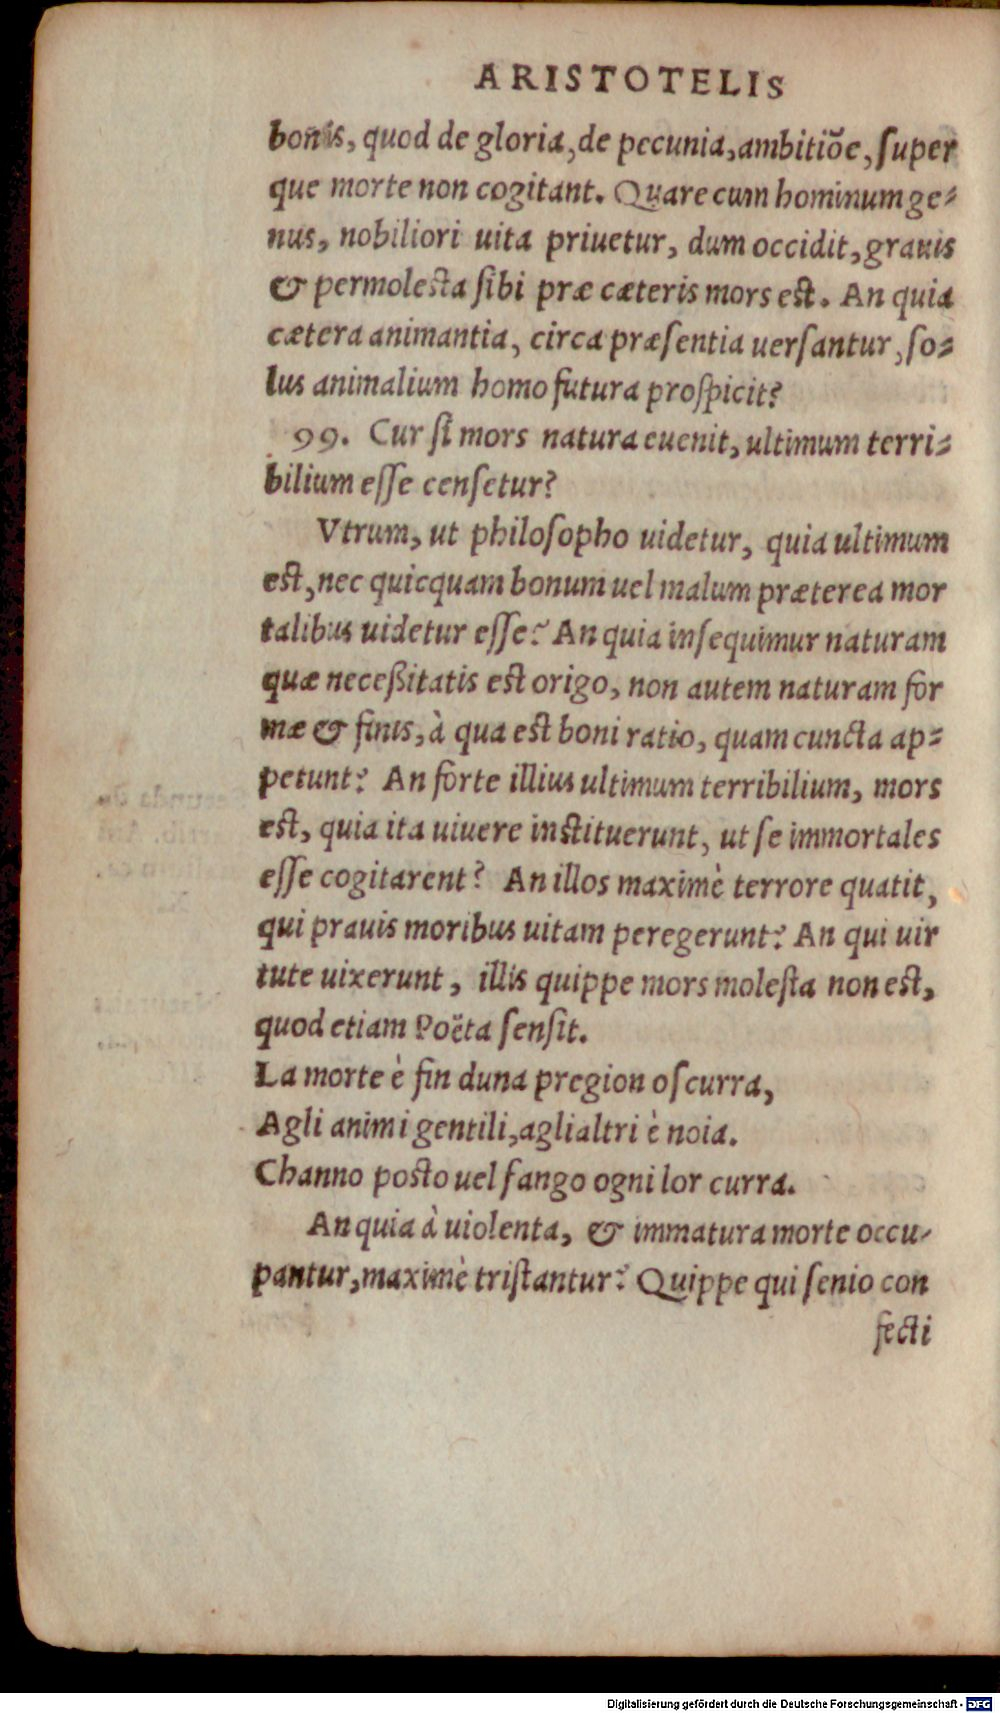 ARISTOTELIS
bonis, quod de gloria, de pecunia, ambitiōe, ſuper
que morte non cogitant. Quare cum hominum ge-
nus, nobiliori uita priuetur, dum occidit, grauis
& permoleſta ſibi præ cæteris mors eſt. An quia
cætera animantia, circa præſentia uerſantur, ſo-
lus animalium homo futura proſpicit?
99. Cur ſi mors natura euenit, ultimum terri-
bilium eſſe cenſetur?
Vtrum, ut philoſopho uidetur, quia ultimum
eſt, nec quicquam bonum uel malum præterea mor
talibus uidetur eſſe? An quia inſequimur naturam
quæ neceßitatis eſt origo, non autem naturam for
mæ & finis, à qua eſt boni ratio, quam cuncta ap-
petunt? An forte illius ultimum terribilium, mors
eſt, quia ita uiuere inſtituerunt, ut ſe immortales
eſſe cogitarent? An illos maximè terrore quatit,
qui prauis moribus uitam peregerunt? An qui uir
tute uixerunt, illis quippe mors moleſta non eſt,
quod etiam Poëta ſenſit.
La morte è fin duna pregion oſcurra,
Agli animi gentili, aglialtri è noia.
Channo poſto uel fango ogni lor curra.
An quia à uiolenta, & immatura morte occu-
pantur, maximè triſtantur? Quippe qui ſenio con
fecti
Digitalisierung gefördert durch die Deutsche Forschungsgemeinschaft - DFG